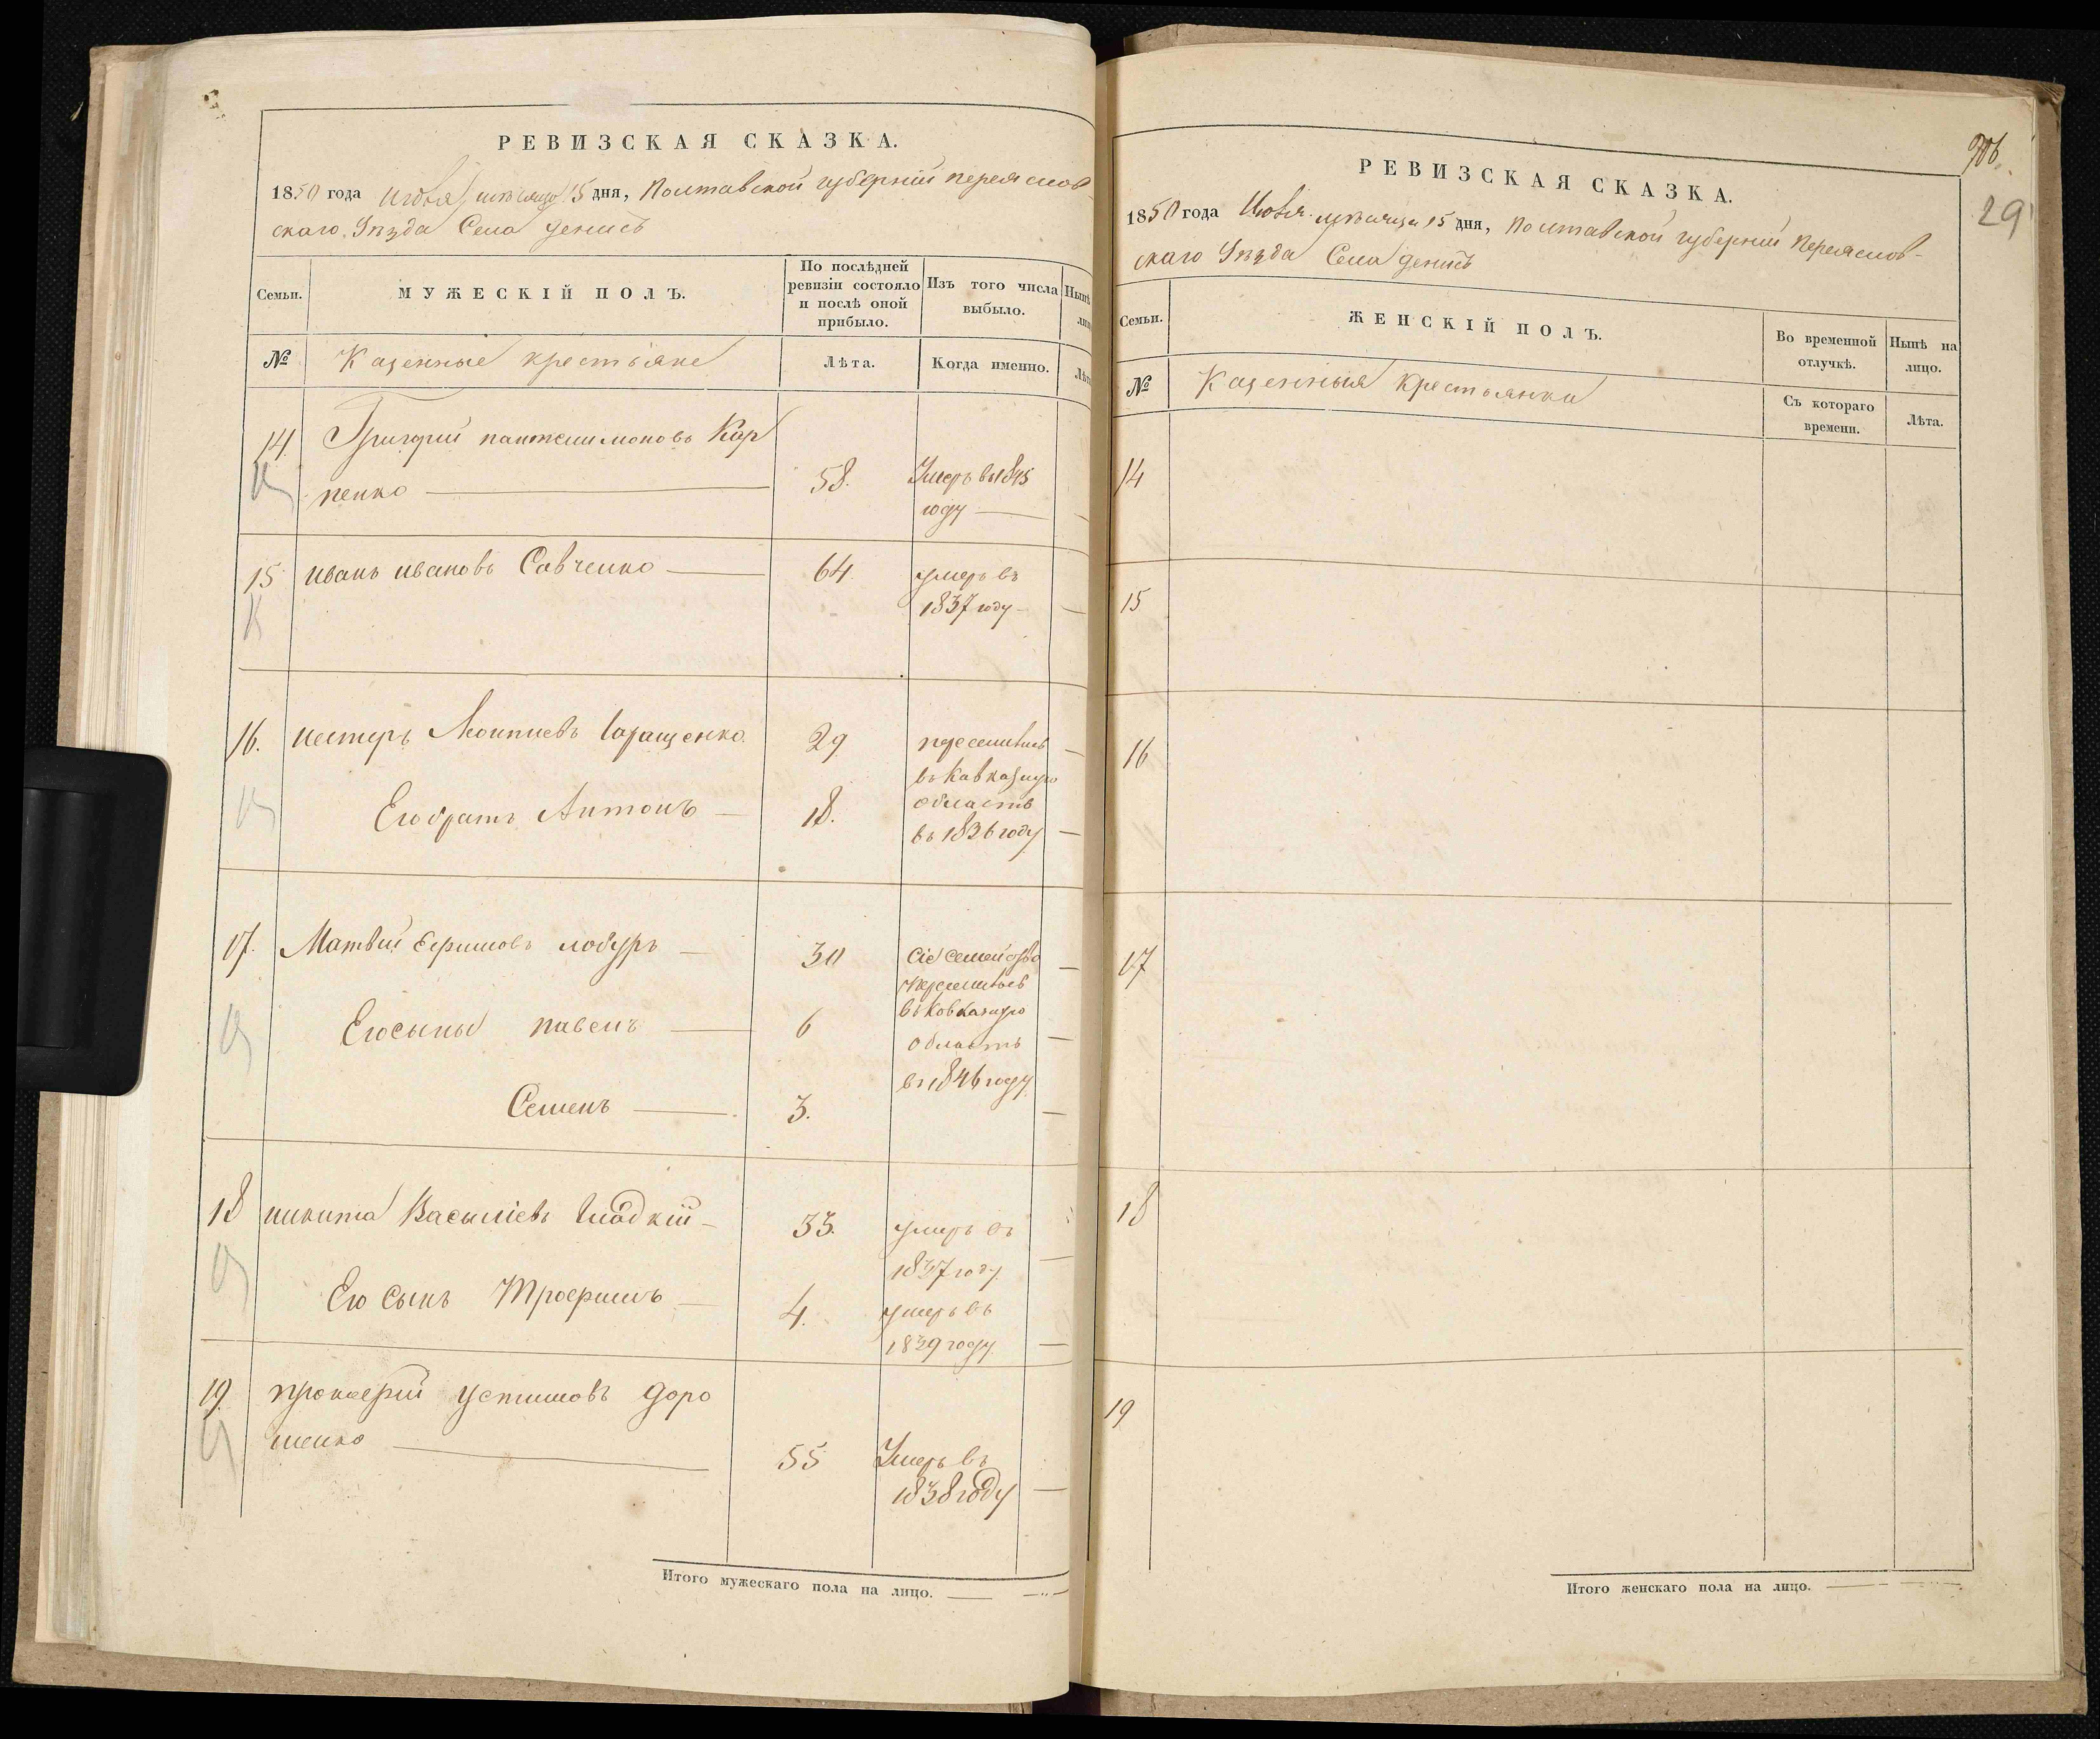 РЕВИЗСКАЯ СКАЗКА.
1850 года Июня мѣсяца 15 дня, Полтавской губерніи Переяслов
скаго Уѣзда Села Денисъ
Семьи.
МУЖЕСКІЙ ПОЛЪ.
По послѣдней
ревизіи состояло
и послѣ оной
прибыло.
Изъ того числа
выбыло.
Нынѣ
№
Казенные крестьяне
Лѣта.
Когда именно.
14. Григорій пантелимоновъ Кар
пенко 58. Умеръ въ 1845
году
15 иванъ ивановъ Савченко 64. умеръ въ
1837 году
16. нестеръ Леонтиевъ Гаращенко 29 переселились
въ Кавказкую
Его братъ Антонъ 18. область
въ 1836 году
17. Матвѣй Ефимовъ лобуръ 30 Сіе Семейство
переселилось
Его сыны павелъ 6 въ Кавказкую
область
въ 1846 году
Семенъ 3.
18 никита Василіевъ Гладкій 33. умеръ въ
1837 году
Его Сынъ Трофимъ 4. умеръ въ
1839 году
19. прокофій устимовъ доро
шенко 55 Умеръ въ
1838 году
Итого мужескаго пола на лицо.
906.
29
РЕВИЗСКАЯ СКАЗКА.
1850 года Июня мѣсяца 15 дня, Полтавской губерніи Переяслов-
скаго Уѣзда Села Денисъ
Семьи.
ЖЕНСКІЙ ПОЛЪ.
Во временной
отлучкѣ.
Нынѣ на
лицо.
№
Казенныя Крестьянки
Съ котораго
времени.
Лѣта.
14
15
16
17
18
19
Итого женскаго пола на лицо.